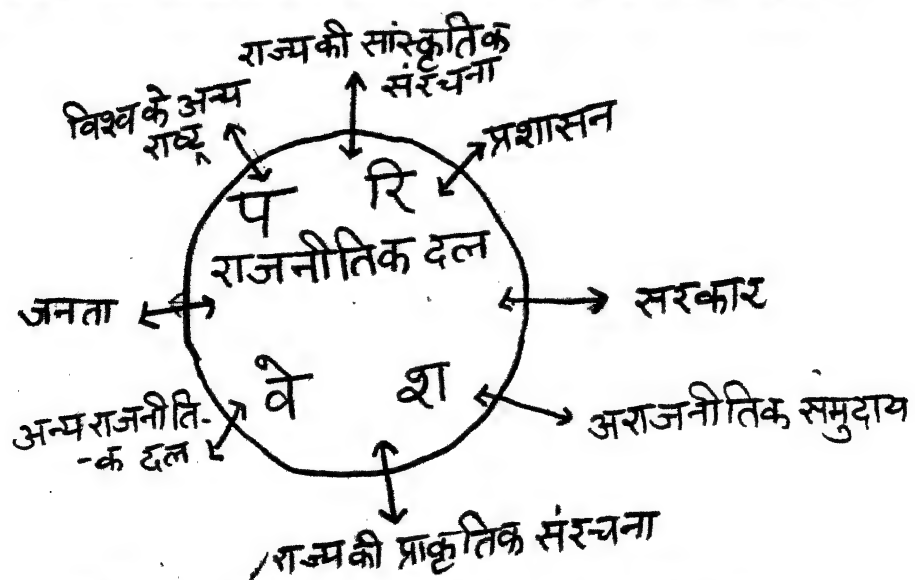 राज्य की सांस्कृतिक
संरचना
विश्व के अन्य
राष्ट्र
प्रशासन
प रि
राजनीतिक दल
जनता
सरकार
वे श
अन्य राजनीति-
-क दल
अराजनीतिक समुदाय
राज्य की प्राकृतिक संरचना